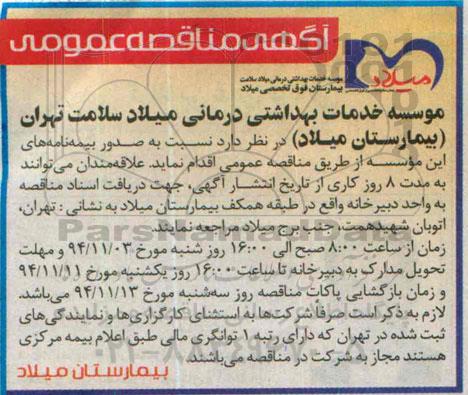 آگهی مناقصه عمومی
میلاد
موسسه خدمات بهداشتی درمانی میلاد سلامت
بیمارستان فوق تخصصی میلاد
موسسه خدمات بهداشتی درمانی میلاد سلامت تهران
(بیمارستان میلاد) در نظر دارد نسبت به صدور بیمه‌نامه‌های
این مؤسسه از طریق مناقصه عمومی اقدام نماید. علاقه‌مندان می‌توانند
به مدت ۸ روز کاری از تاریخ انتشار آگهی، جهت دریافت اسناد مناقصه
به واحد دبیرخانه واقع در طبقه همکف بیمارستان میلاد به نشانی : تهران،
اتوبان شهیدهمت، جنب برج میلاد مراجعه نمایند.
زمان از ساعت ۸:۰۰ صبح الی ۱۶:۰۰ روز شنبه مورخ ۹۴/۱۱/۰۳ و مهلت
تحویل مدارک به دبیرخانه تا ساعت ۱۶:۰۰ روز یکشنبه مورخ ۹۴/۱۱/۱۱
و زمان بازگشایی پاکات مناقصه روز سه‌شنبه مورخ ۹۴/۱۱/۱۳ می‌باشد.
لازم به ذکر است صرفاً شرکت‌ها به استثنای کارگزاری‌ها و نمایندگی‌های
ثبت شده در تهران که دارای رتبه ۱ توانگری مالی طبق اعلام بیمه مرکزی
هستند مجاز به شرکت در مناقصه می‌باشند
بیمارستان میلاد